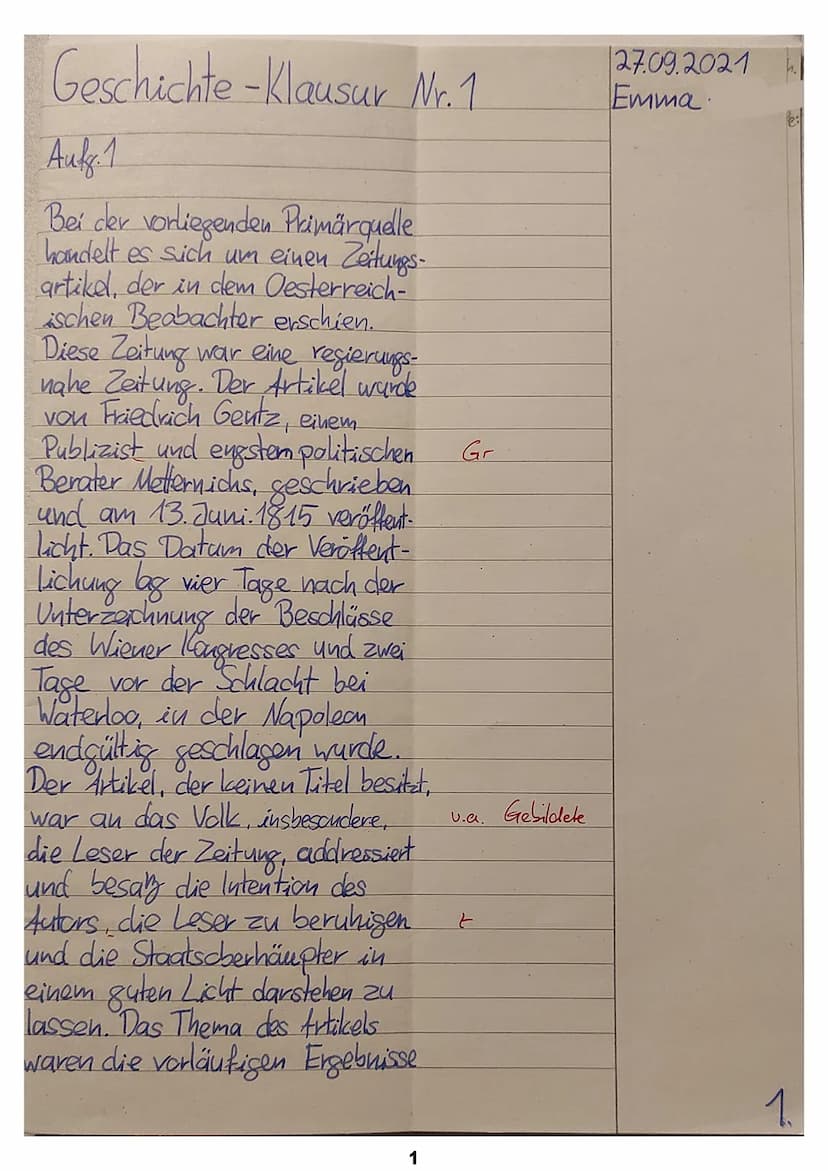 Geschichte-Klausur Nr. 1
27.09.2021
Emma.
Aufg. 1
Bei der vorliegenden Primärquelle
handelt es sich um einen Zeitungs-
artikel, der in dem Oesterreich-
ischen Beobachter erschien.
Diese Zeitung war eine regierungs-
nahe Zeitung. Der Artikel wurde
von Friedrich Gentz, einem
Publizist und engstem politischen Gr
Berater Metternichs, geschrieben
und am 13. Juni. 1815 veröffent-
licht. Das Datum der Veröffent-
lichung lag vier Tage nach der
Unterzeichnung der Beschlüsse
des Wiener Kongresses und zwei
Tage vor der Schlacht bei
Waterloo, in der Napoleon
endgültig geschlagen wurde.
Der Artikel, der keinen Titel besitzt,
war an das Volk, insbesondere, u.a. Gebildete
die Leser der Zeitung, addressiert
und besaß die Intention des
Autors, die Leser zu beruhigen t
und die Staatsoberhäupter in
einem guten Licht darstehen zu
lassen. Das Thema des Artikels
waren die vorläufigen Ergebnisse
1.
1